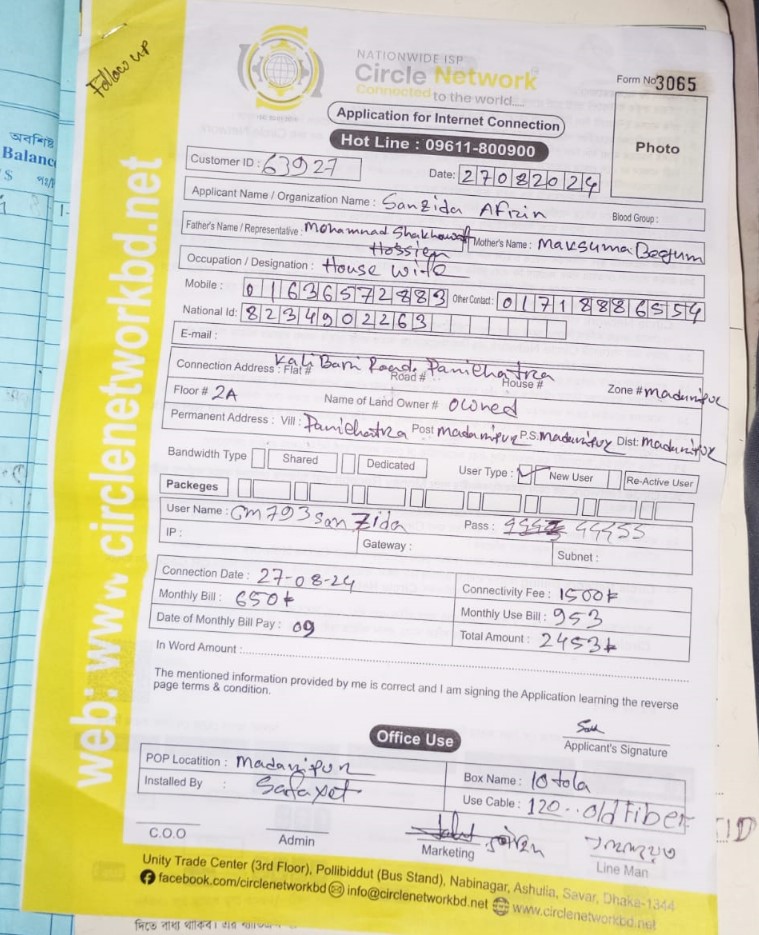 Follow up
NATIONWIDE ISP
Circle Network
Connected to the world....
Form No 3065
Application for Internet Connection
Hot Line : 09611-800900
Photo
Customer ID : 63927
Date: 27082024
Applicant Name / Organization Name : Sanzida Afrin
Blood Group :
Father's Name / Representative : Mohamnad Shakhawatt Hossien Mother's Name : Maksuma Begum
Occupation / Designation : House wife
Mobile : 01636572883 Other Contact : 01718886554
National Id: 8234902263
E-mail :
Connection Address : Flat # Kali Bari Road, Panichatra Road # House # Zone # madaripur
Floor # 2A Name of Land Owner # owned
Permanent Address : Vill : Panichatra Post madaripur P.S. madaripur Dist: madaripur
Bandwidth Type Shared Dedicated User Type : New User Re-Active User
Packeges
User Name : Cm793sanzida Pass : 44455
IP : Gateway : Subnet :
Connection Date : 27-08-24 Connectivity Fee : 1500৳
Monthly Bill : 650৳ Monthly Use Bill : 953
Date of Monthly Bill Pay : 09 Total Amount : 2453৳
In Word Amount :
The mentioned information provided by me is correct and I am signing the Application learning the reverse
page terms & condition.
Applicant's Signature
Office Use
POP Locatition : Madaripur Box Name : 10 tola
Installed By : Safayet Use Cable : 120.. old Fiber
C.O.O Admin Marketing Line Man
Unity Trade Center (3rd Floor), Pollibiddut (Bus Stand), Nabinagar, Ashulia, Savar, Dhaka-1344
facebook.com/circlenetworkbd info@circlenetworkbd.net www.circlenetworkbd.net
web: www.circlenetworkbd.net
অবশিষ্ট
Balance
$